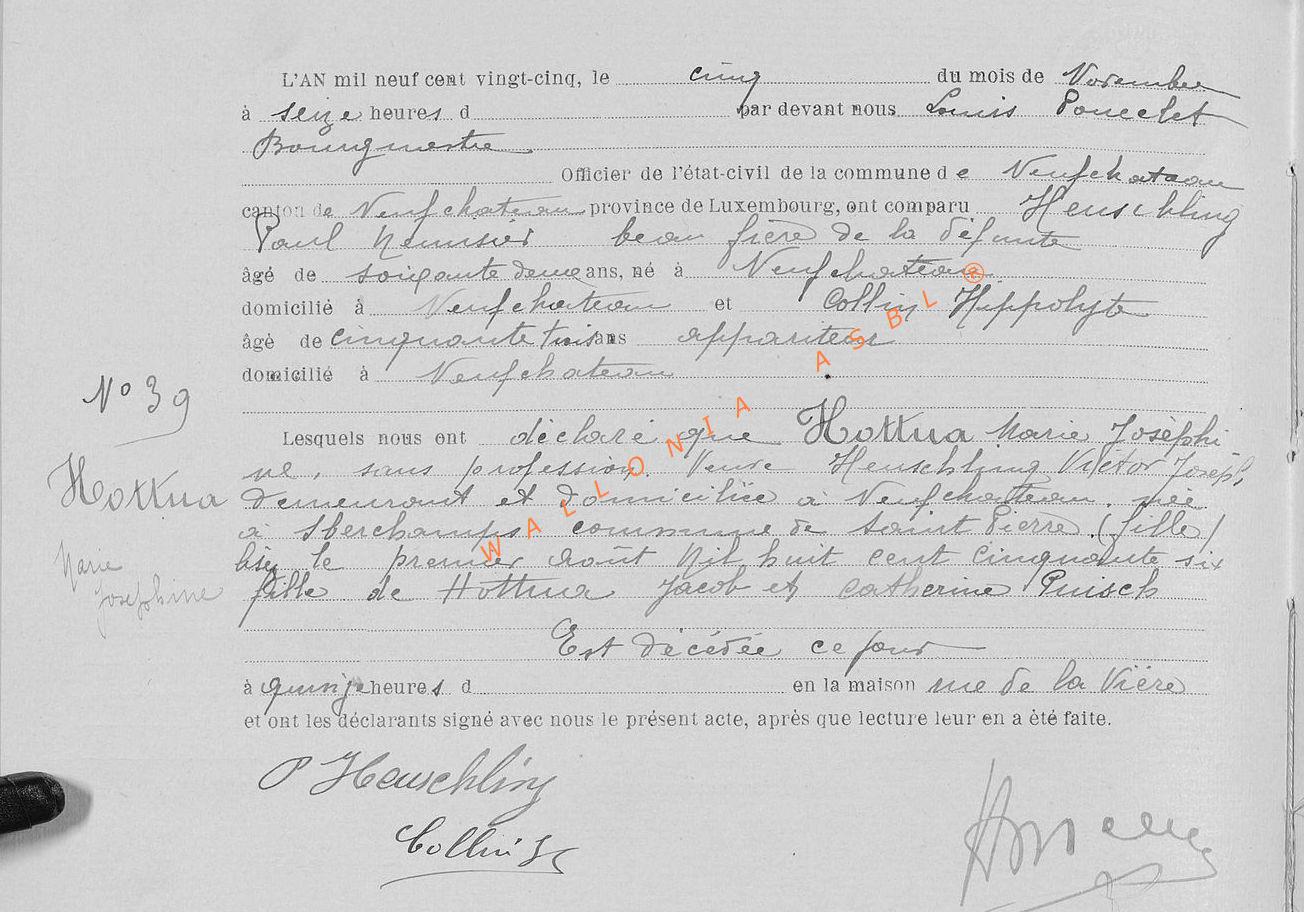 L'AN mil neuf cent vingt-cinq, le cinq du mois de Novembre
à seize heures d par devant nous Louis Poncelet
Bourgmestre
Officier de l'état-civil de la commune de Neufchateau
canton de Neufchateau province de Luxembourg, ont comparu Heuschling
Paul beau frère de la défunte
âgé de soixante deux ans, né à Neufchateau
domicilié à Neufchateau et Collin Hippolyte
âgé de cinquante trois ans appariteur
domicilié à Neufchateau
N° 39
Lesquels nous ont déclaré que Hottua Marie Joséphi
ne, sans profession, Veuve Heuschling Victor Joseph,
Hottua
demeurant et domiciliée à Neufchateau, née
à Sberchamps commune de Saint Pierre (fille)
Marie
Joséphine
le premier août Mil huit cent cinquante six
fille de Hottua Jacob et Catherine Puisch
Est décédée ce jour
à quinze heures d en la maison rue de la Vière
et ont les déclarants signé avec nous le présent acte, après que lecture leur en a été faite.
P Heuschling
Collin
WALLONIA ASBL ®